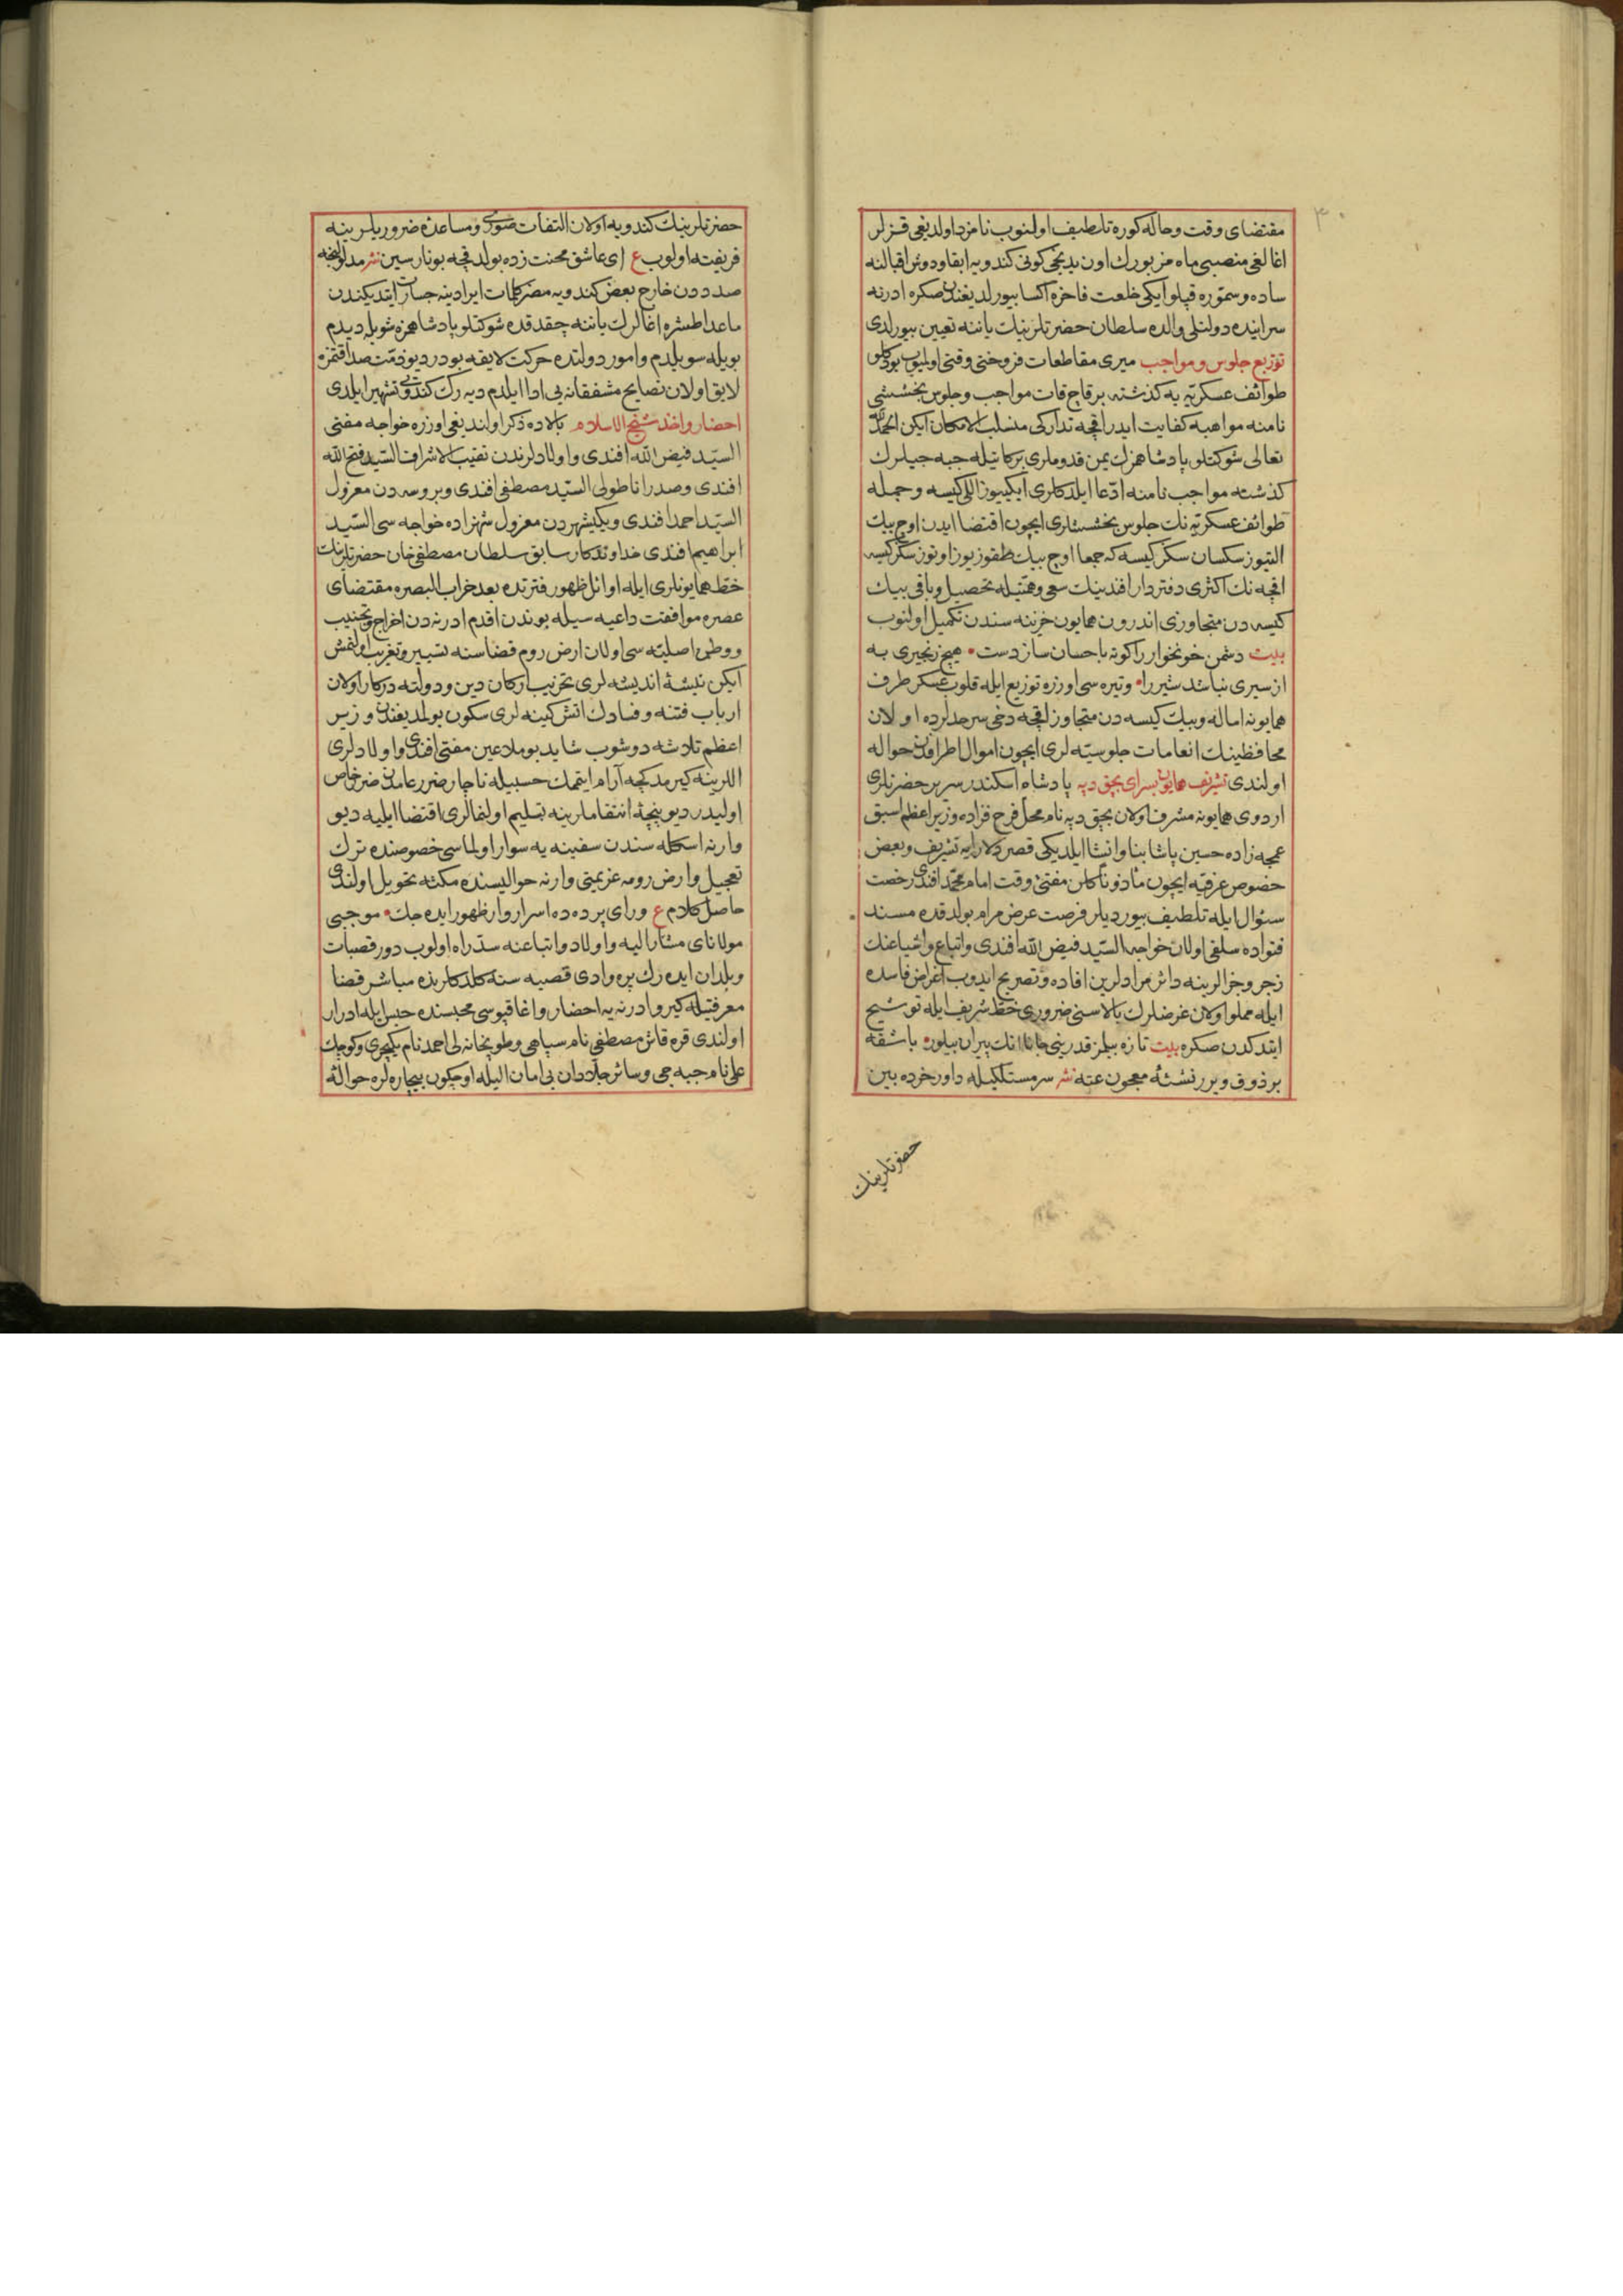 مقتضای وقت و حاله کوره تلطیف اولنوب نامزد اولدیغی قزلر
اغالغی منصبی ماه مزبورك اون یدنجی کونی کندویه ابقا ودوش اقبالنه
ساده وسموره قپلو ایکی خلعت فاخره اکسا بیورلدیغندن صکره ادرنه
سراینده دولتلی والده سلطان حضرتلرینك یاننه تعیین بیورلدی
توزیع جلوس و مواجب میری مقاطعات فروختی وقتی اولمیوب بو کلو
طوائف عسکریه یه کذشته برقاچ قات مواجب وجلوس بخششی
نامنه مواهبه کفایت ایدر اقچه تدارکی منسلب الامکان ایکن الحمدلله
تعالی شوکتلو پادشاهمزك یمن قدوملری برکاتیله جبه جیلرك
کذشته مواجب نامنه ادعا ایلدکلری ایکییوز اللی کیسه وجمله
طوائف عسکریه نك جلوس بخششلری ایچون اقتضا ایدن اوچ بیك
التیوز سکسان سکز کیسه که جمعا اوچ بیك طقوز یوز اوتوز سکز کیسه
اقچه نك اکثری دفتردار افندینك سعی وهمتیله تحصیل وباقی بیك
کیسه دن متجاوزی اندرون همایون خزینه سندن تکمیل اولنوب
بیت دشمن خونخوار را کوته باحسان ساز دست هیچ زنجیری به
از سیری نباشد شیر را وتیره سی اوزره توزیع ایله قلوب عسکر طرف
همایونه اماله وبیك کیسه دن متجاوز اقچه دخی سرحدلرده اولان
محافظینك انعامات جلوسیه لری ایچون اموال اطرافدن حواله
اولندی تشریف همایون بسرای بجق دپه پادشاه اسکندر سریر حضرتلری
اردوی همایونه مشرف اولان بجق دپه نام محل فرح فزاده وزیر اعظم اسبق
عمجه زاده حسین پاشا بنا وانشا ایلدیکی قصر دلارایه تشریف وبعض
خصوص عرضیه ایچون مأذونا کلن مفتئ وقت امام محمد افندی رخصت
سئوال ایله تلطیف بیوردیلر فرصت عرض مرام بولدقده مسند
فتواده سلفی اولان خواجه السید فیض الله افندی واتباع واشیاعنك
زجر وجزالرینه دائر مرادلرین افاده وتصریح ایدوب اغراض فاسده
ایله مملو اولان عرضلرك بالاسنی ضروری خط شریف ایله توشیح
ایتدکدن صکره بیت تازه بیلمز قدرینی جانا انك پیران بیلور باشقه
بر ذوق ویرر نشئۀ معجون عته نثر سرمستلکیله داور خرده بین
حضرتلرینك
حضرتلرینك کندویه اولان التفات صوری ومساعدۀ ضروریلرینه
فریفته اولوب ع ای عاشق محنت زده بولدقچه بونارسین نثر مدلولنجه
صدددن خارج بعض کندویه مضر کلمات ایرادینه جسارت ایتدیکندن
ماعدا طشره اغالرك یاننه چقدقده شوکتلو پادشاهمزه شویله دیدم
بویله سویلدم وامور دولتده حرکت لایقه بودر دیو ذمت صداقتمزه
لایق اولان نصایح مشفقانه یی ادا ایلدم دیه رك کندویی تشهیر ایلدی
احضار واخذ شیخ الاسلام بالاده ذکر اولندیغی اوزره خواجه مفتی
السید فیض الله افندی واولادلرندن نقیب الاشراف السید فتح الله
افندی وصدر اناطولی السید مصطفی افندی وبروسه دن معزول
السید احمد افندی ویکیشهردن معزول شهزاده خواجه سی السید
ابراهیم افندی خداوندکار سابق سلطان مصطفی خان حضرتلرینك
خط همایونلری ایله اوائل ظهور فترتده بعد خراب البصره مقتضای
عصره موافقت داعیه سیله بوندن اقدم ادرنه دن اخراج وتجنیب
ووطن اصلیه سی اولان ارض روم قضاسنه تسییر وتغریب اولنمش
ایکن تیشۀ اندیشه لری تخریب ارکان دین ودولته درکار اولان
ارباب فتنه وفسادك اتش کینه لری سکون بولمدیغندن وزیر
اعظم تلاشه دوشوب شاید بوملاعین مفتی افندی واولادلری
اللرینه کیرمدکجه آرام ایتمك حسبیله ناچار ضرر عامدن ضرر خاص
اولیدر دیو پنجۀ انتقاملرینه تسلیم اولنمالری اقتضا ایلیه دیو
وارنه اسکله سندن سفینه یه سوار اولماسی خصوصنده ترك
تعجیل وارض رومه عزیمتی وارنه حوالیسنده مکثه تحویل اولندی
حاصل کلام ع ورای پرده ده اسرار وار ظهور ایده جك موجبی
مولانای مشارالیه واولاد واتباعنه سد راه اولوب دور قصبات
وبلدان ایده رك پره وادی قصبه سنه کلدکلرنده مباشر قضا
معرفتیله کیرو ادرنه یه احضار واغا قپوسی محبسنده حبس ایله ادرار
اولندی قره قاش مصطفی نام سپاهی وطوپخانه لی احمد نام یکیچری وکوچك
علی نام جبه جی وسائر جلادان بی امان الیله اوچکون بیچاره لره حوالۀ